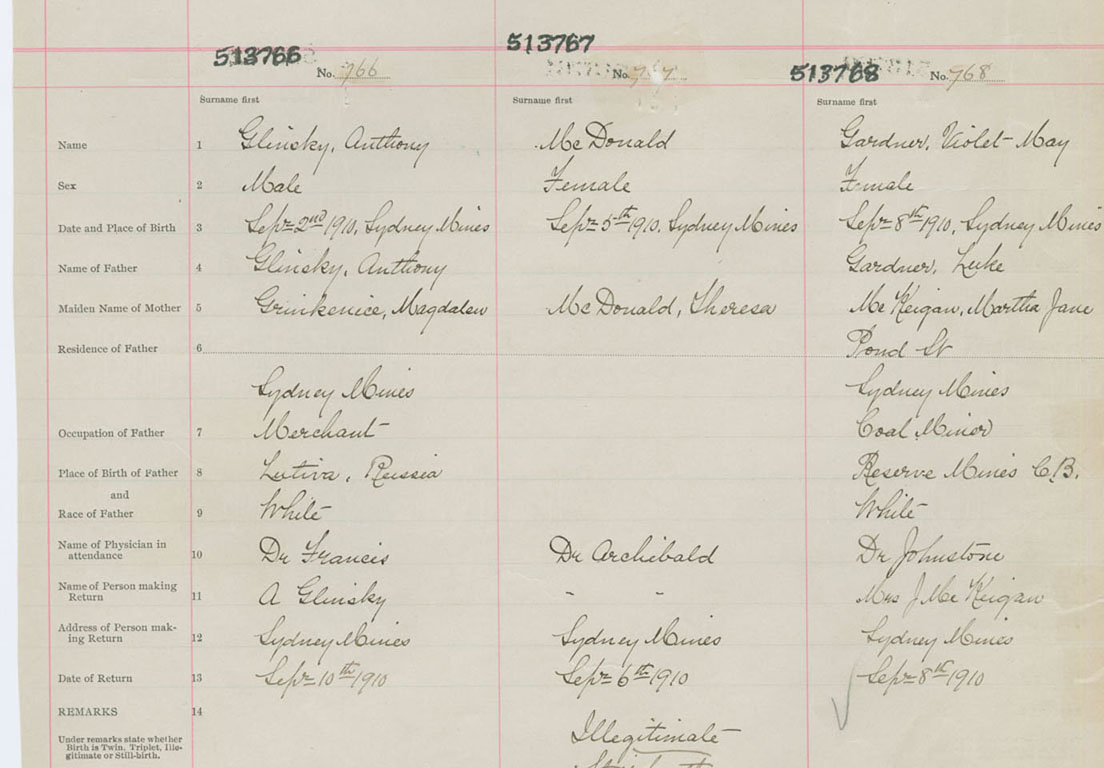 513766 513767 513768
No. 766 No. 767 No. 968
Surname first Surname first Surname first
Name 1 Glinsky, Anthony McDonald Gardner, Violet May
Sex 2 Male Female Female
Date and Place of Birth 3 Sepr 2nd 1910, Sydney Mines Sepr 5th 1910, Sydney Mines Sepr 8th 1910, Sydney Mines
Name of Father 4 Glinsky, Anthony Gardner, Luke
Maiden Name of Mother 5 Grinkenice, Magdalen McDonald, Theresa McKeigan, Martha Jane
Residence of Father 6 Pond St
Sydney Mines Sydney Mines
Occupation of Father 7 Merchant Coal Miner
Place of Birth of Father 8 Lutiva, Russia Reserve Mines C.B.
and
Race of Father 9 White White
Name of Physician in
attendance 10 Dr Francis Dr Archibald Dr Johnstone
Name of Person making
Return 11 A Glinsky - - Mrs J McKeigan
Address of Person mak-
ing Return 12 Sydney Mines Sydney Mines Sydney Mines
Date of Return 13 Sepr 10th 1910 Sepr 6th 1910 Sepr 8th 1910
REMARKS 14
Under remarks state whether
Birth is Twin, Triplet, Ille-
gitimate or Still-birth.
Illegitimate